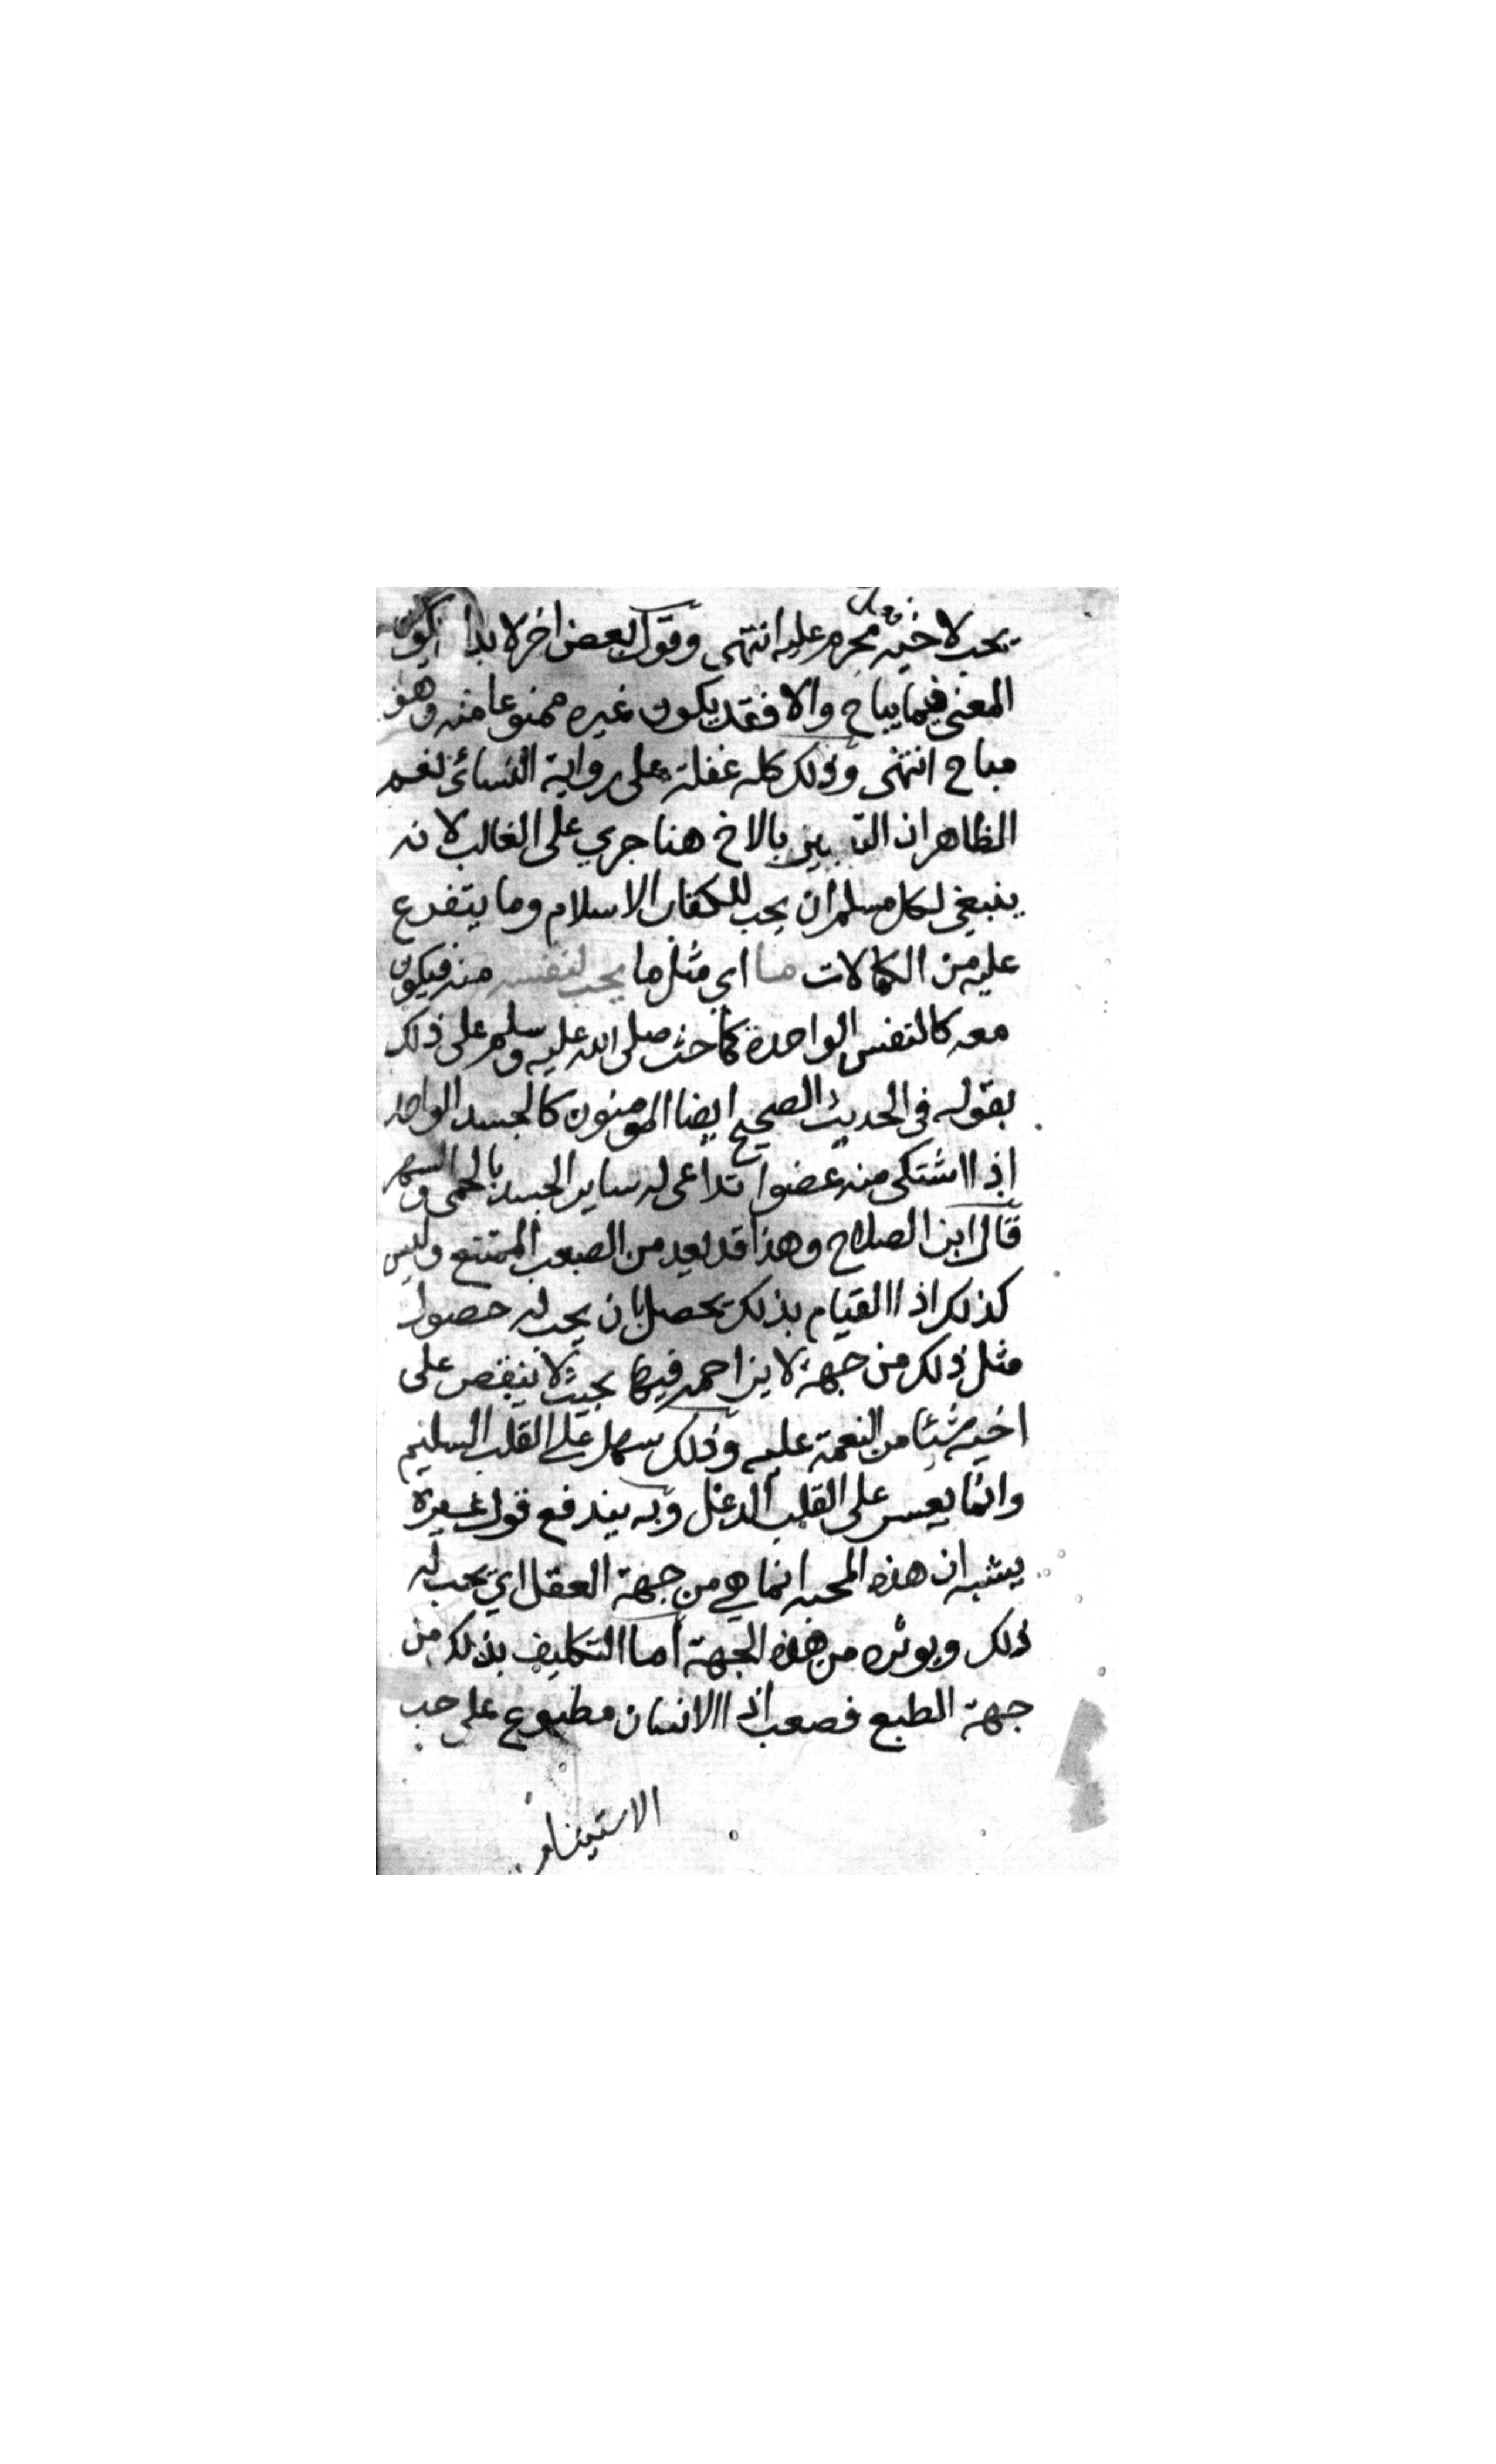 يحب لاخيه فعل محرم عليه انتهى وقول بعض اخر لا بد ان يكون
المعنى فيما يباح والا فقد يكون غيره ممنوعا منه وهو
مباح انتهى وذلك كله غفلة على رواية النسائي نعم
الظاهر ان التعبير بالاخ هنا جري على الغالب لانه
ينبغي لكل مسلم ان يحب للكفار الاسلام وما يتفرع
عليه من الكمالات ما اي مثل ما يحب لنفسه منه فيكون
معه كالنفس الواحدة كما حث صلى الله عليه وسلم على ذلك
بقوله في الحديث الصحيح ايضا المومنون كالجسد الواحد
اذا اشتكى منه عضوا تداعى له ساير الجسد بالحمى والسهر
قال ابن الصلاح وهذا قد يعد من الصعب الممتنع وليس
كذلك اذ القيام بذلك يحصل بان يحب له حصول
مثل ذلك من جهة لا يزاحمه فيها بحيث لا ينقص على
اخيه شئا من النعمة عليه وذلك سهل على القلب السليم
وانما يعسر على القلب الدغل وبه يندفع قول غيره
يشبه ان هذه المحبه انما هي من جهة العقل اي يحب له
ذلك ويوثره من هذه الجهة اما التكليف بذلك من
جهة الطبع فصعب اذ الانسان مطبوع على حب
الاستيثار